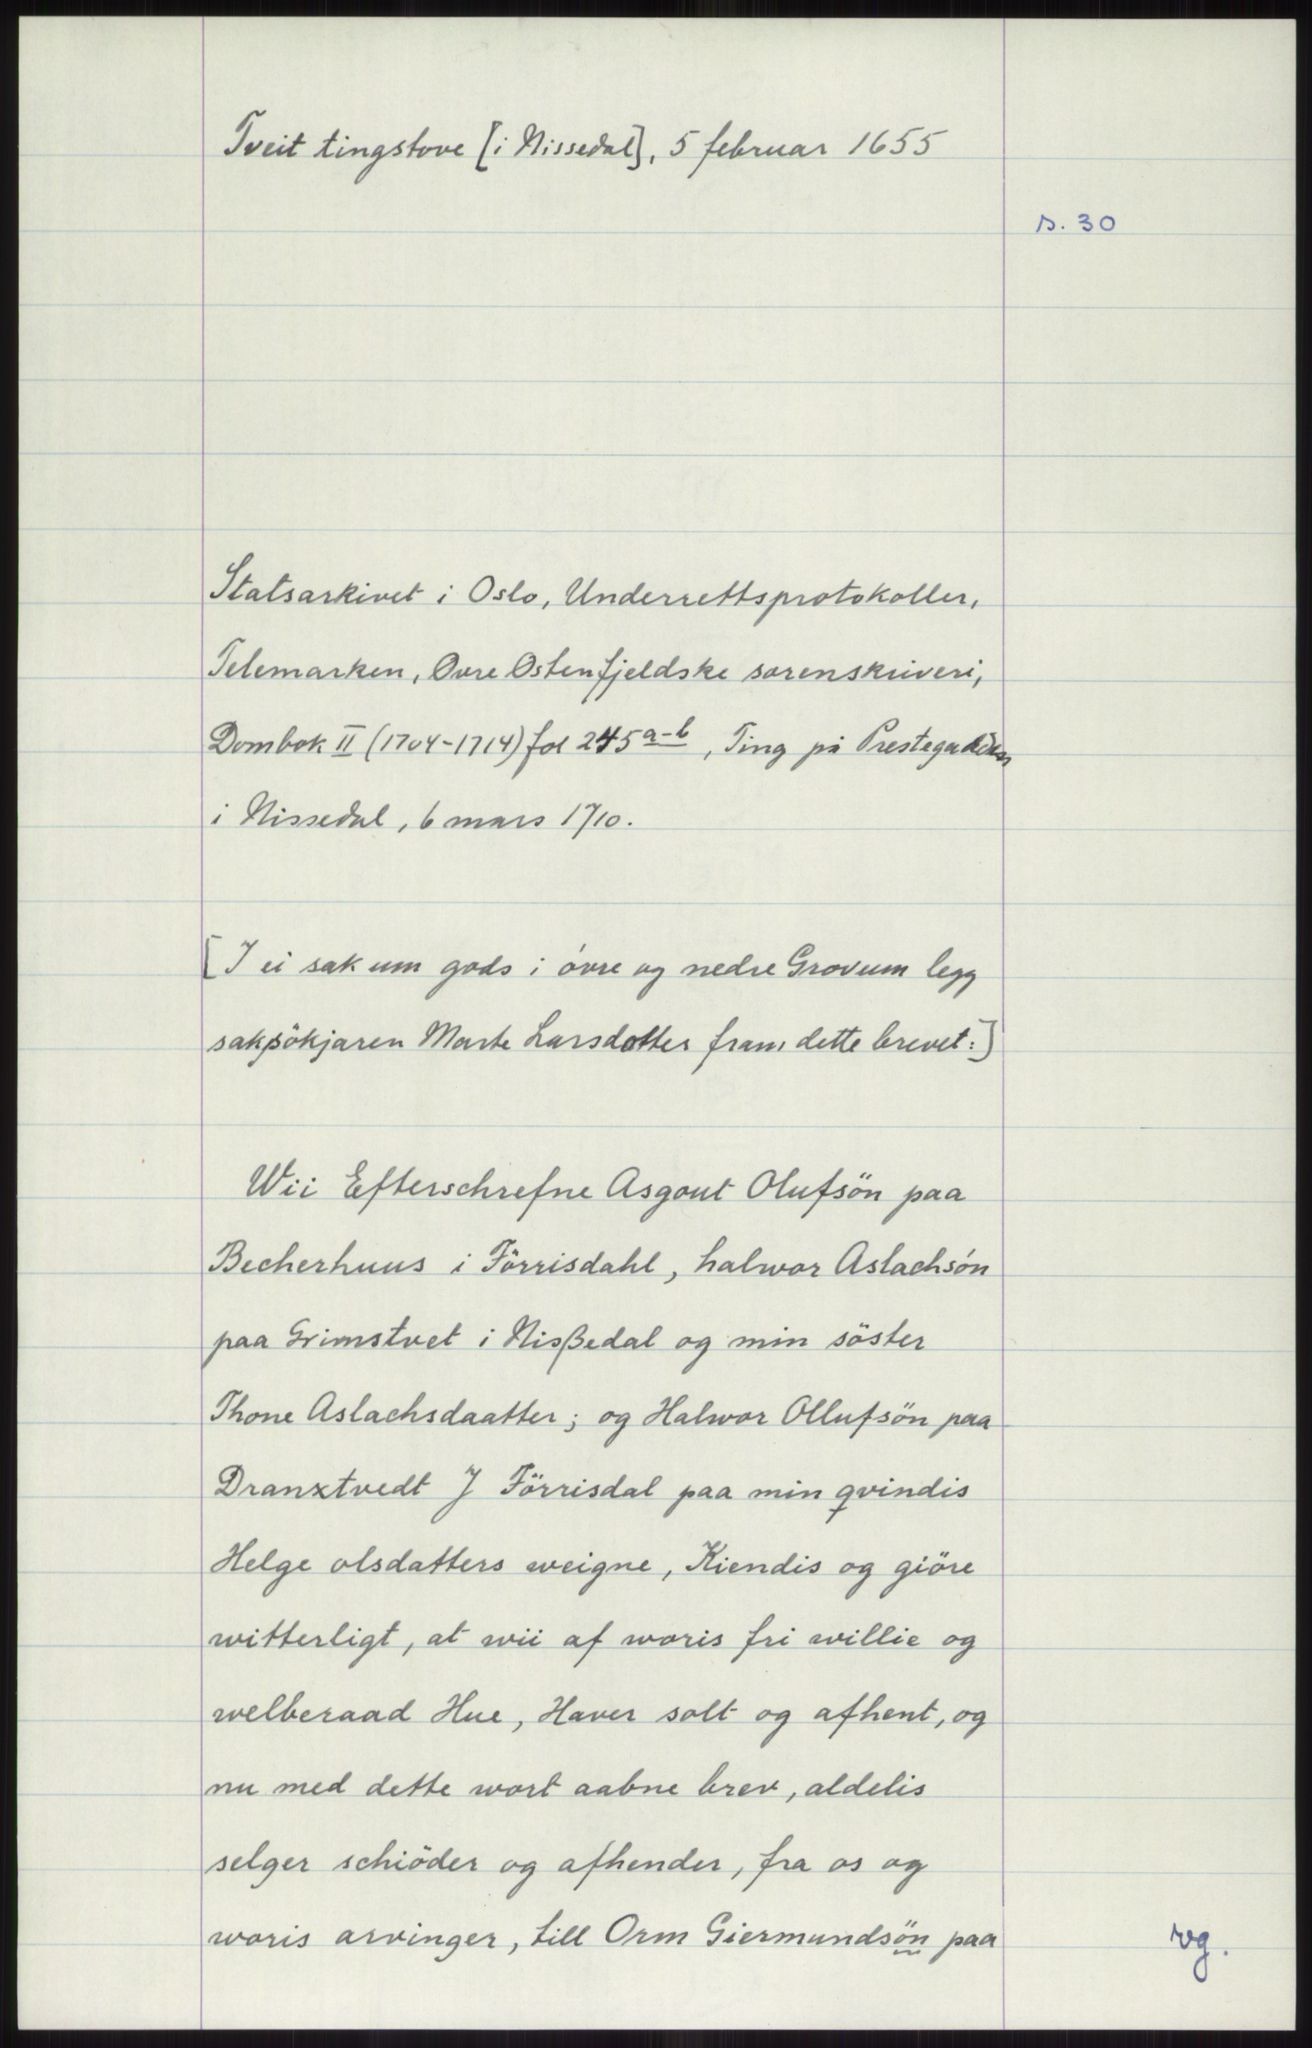 Tveit tingstove [i Nissedal], 5 februar 1655
s. 30
Statsarkivet i Oslo, Underrettsprotokoller,
Telemarken, Øvre Østenfjeldske sorenskriveri,
Dombok II (1704-1714) fol 245 a-b, Ting på Prestegarden
i Nissedal, 6 mars 1710.
[I ei sak um gods i óvre og nedre Grovum legg
saksökjaren Marte Larsdotter fram dette brevet:]
Wii Efterschrefne Asgout Olufsön paa
Becherhuus i Förrisdahl, halwor Aslachsón
paa Grimstvet i Nisßedal og min söster
Thone Aslachsdaatter; og Halwor Ollufsön paa
Dranxtvedt J Förrisdal paa min qvindis
Helge olsdatters weigne, Kiendis og giöre
witterligt, at wii af woris fri willie og
welberaad Hue, Haver solt og afhent, og
nu med dette wort aabne brev, aldelis
selger schiöder og afhender, fra os og
woris arvinger, till Orm Giermundsön paa
vg.